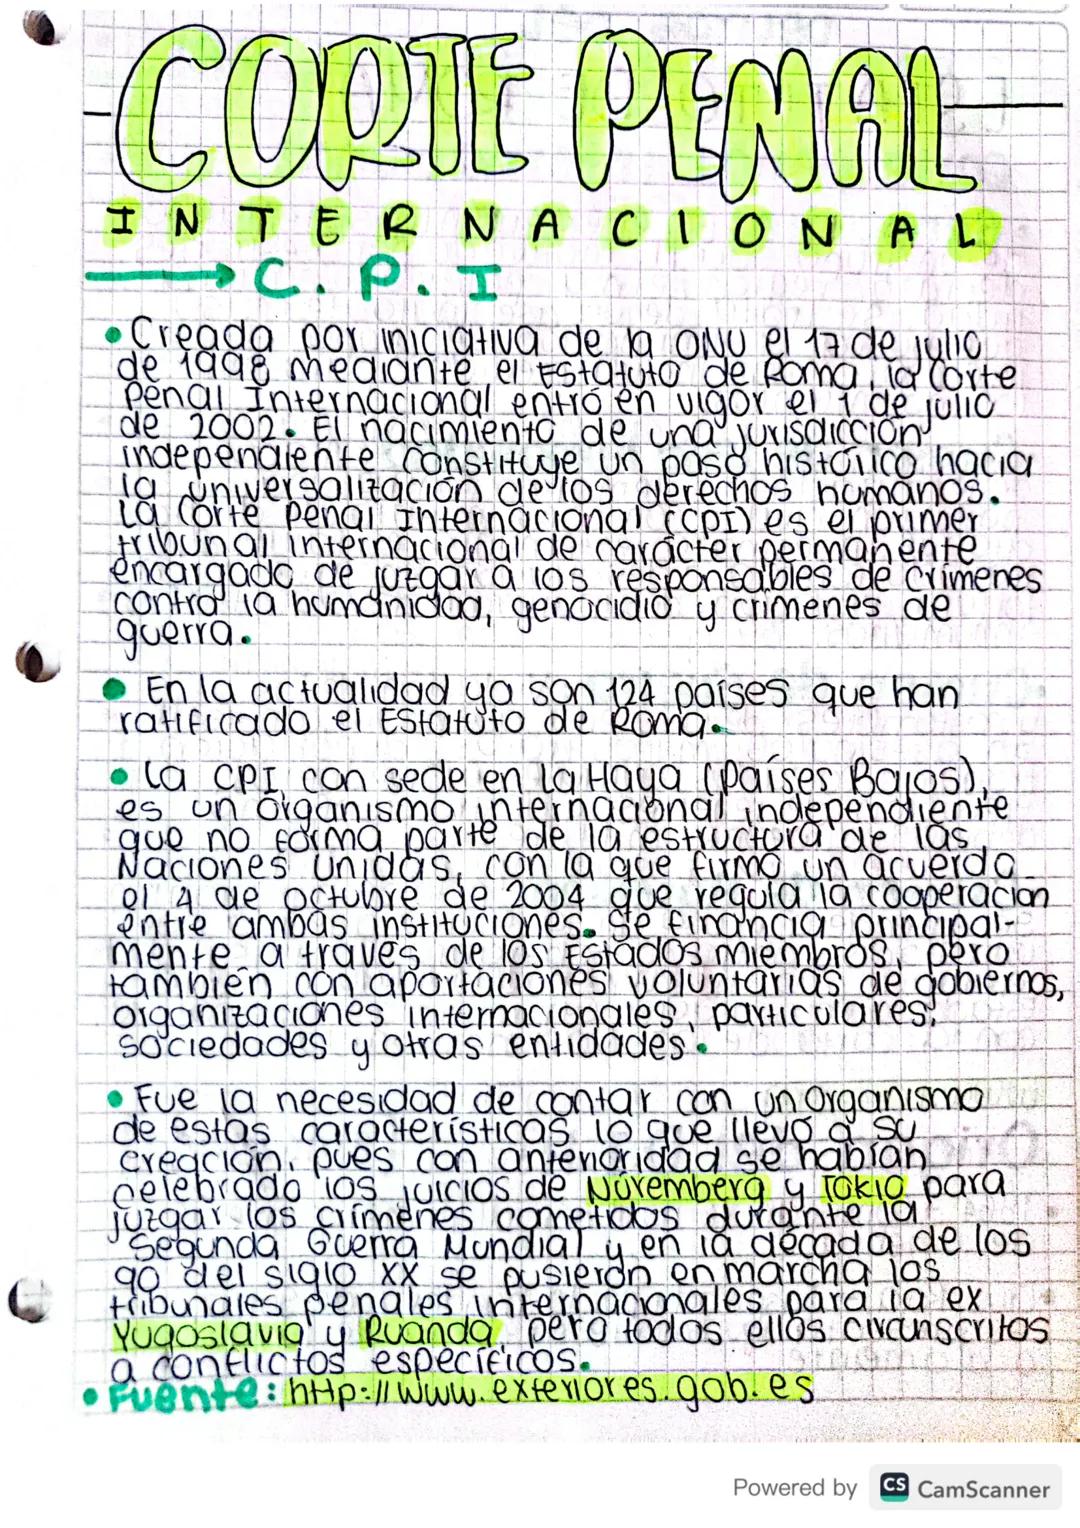 CORTE PENAL
INTERNACIONAL
→ C. P. I
• Creada por iniciativa de la ONU el 17 de julio
de 1998 mediante el Estatuto de Roma, la Corte
Penal Internacional entró en vigor el 1 de julio
de 2002. El nacimiento de una jurisdicción
independiente constituye un paso histórico hacia
la universalización de los derechos humanos.
La Corte Penal Internacional (CPI) es el primer
tribunal internacional de carácter permanente
encargado de juzgar a los responsables de crímenes
contra la humanidad, genocidio y crímenes de
guerra.
• En la actualidad ya son 124 países que han
ratificado el Estatuto de Roma.
• La CPI, con sede en La Haya (Países Bajos),
es un organismo internacional independiente
que no forma parte de la estructura de las
Naciones Unidas, con la que firmó un acuerdo
el 4 de octubre de 2004 que regula la cooperación
entre ambas instituciones. Se financia principal-
mente a través de los Estados miembros, pero
también con aportaciones voluntarias de gobiernos,
organizaciones internacionales, particulares,
sociedades y otras entidades.
• Fue la necesidad de contar con un organismo
de estas características lo que llevó a su
creación, pues con anterioridad se habían
celebrado los juicios de Núremberg y Tokio para
juzgar los crímenes cometidos durante la
Segunda Guerra Mundial y en la década de los
90 del siglo XX se pusieron en marcha los
tribunales penales internacionales para la ex
Yugoslavia y Ruanda, pero todos ellos circunscritos
a conflictos específicos.
• Fuente: http://www.exteriores.gob.es
Powered by CS CamScanner